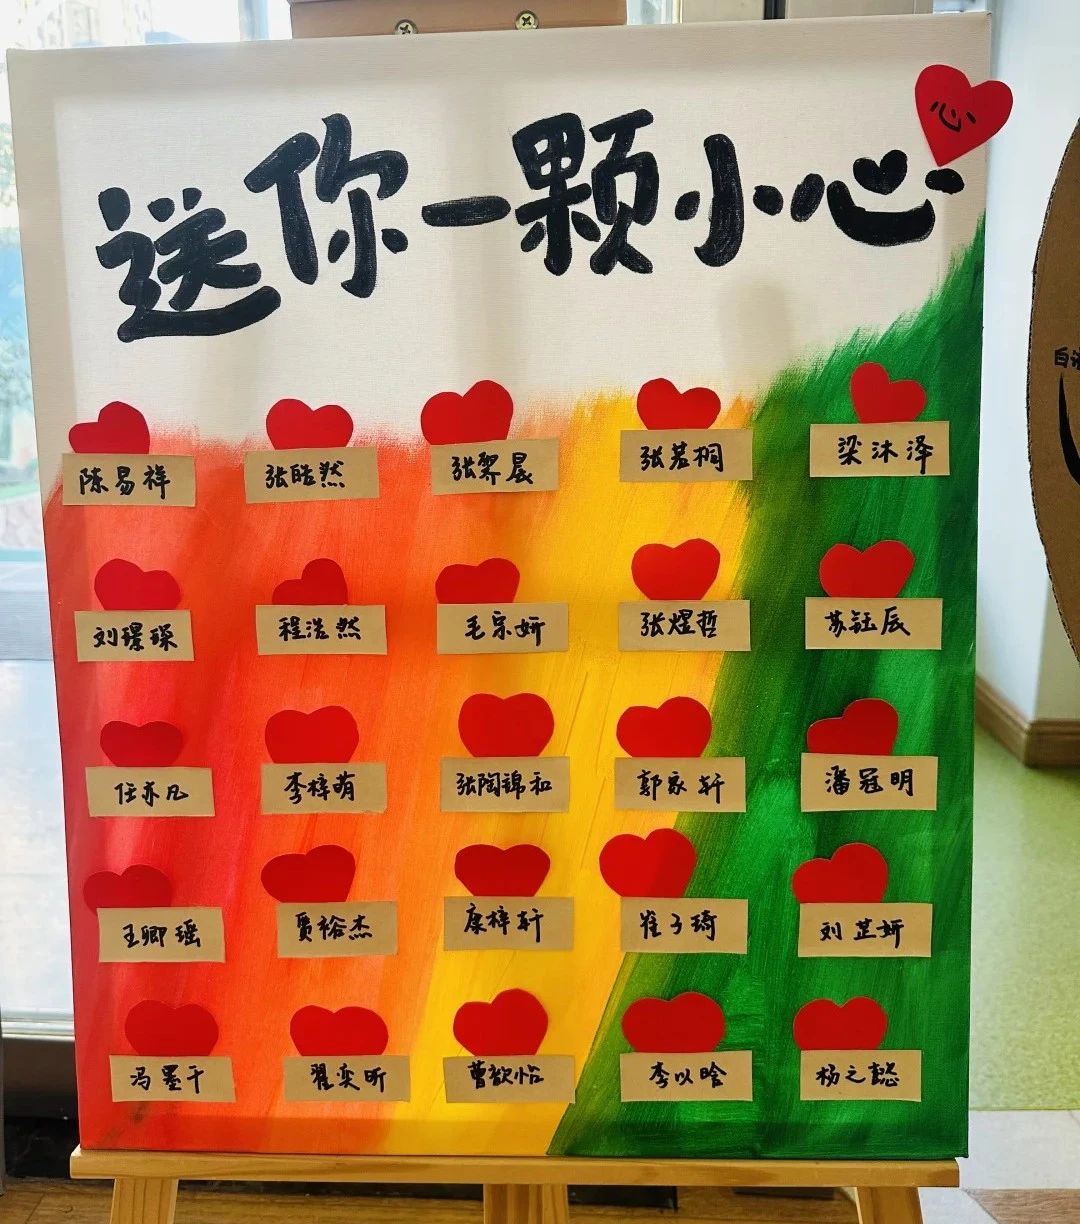 心
送你一颗小心心
白
陈易祥 张皓然 张羿晨 张若桐 梁沐泽
刘璟琛 程浩然 毛宗妍 张煜哲 苏钰辰
任亦凡 李梓萌 张陶锦和 郭家轩 潘冠明
王卿瑶 贾裕杰 康梓轩 崔子琦 刘芷妍
冯墨千 翟奕昕 曹歆怡 李以晗 杨之懿